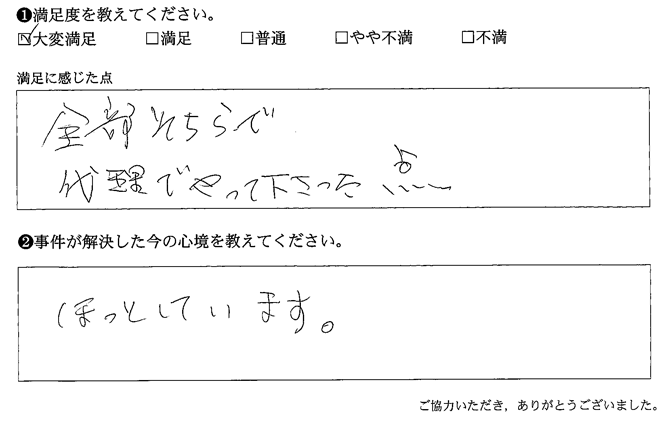 ❶満足度を教えてください。
☑大変満足 □満足 □普通 □やや不満 □不満
満足に感じた点
全部そちらで
代理でやって下さった点
❷事件が解決した今の心境を教えてください。
ほっとしています。
ご協力いただき，ありがとうございました。